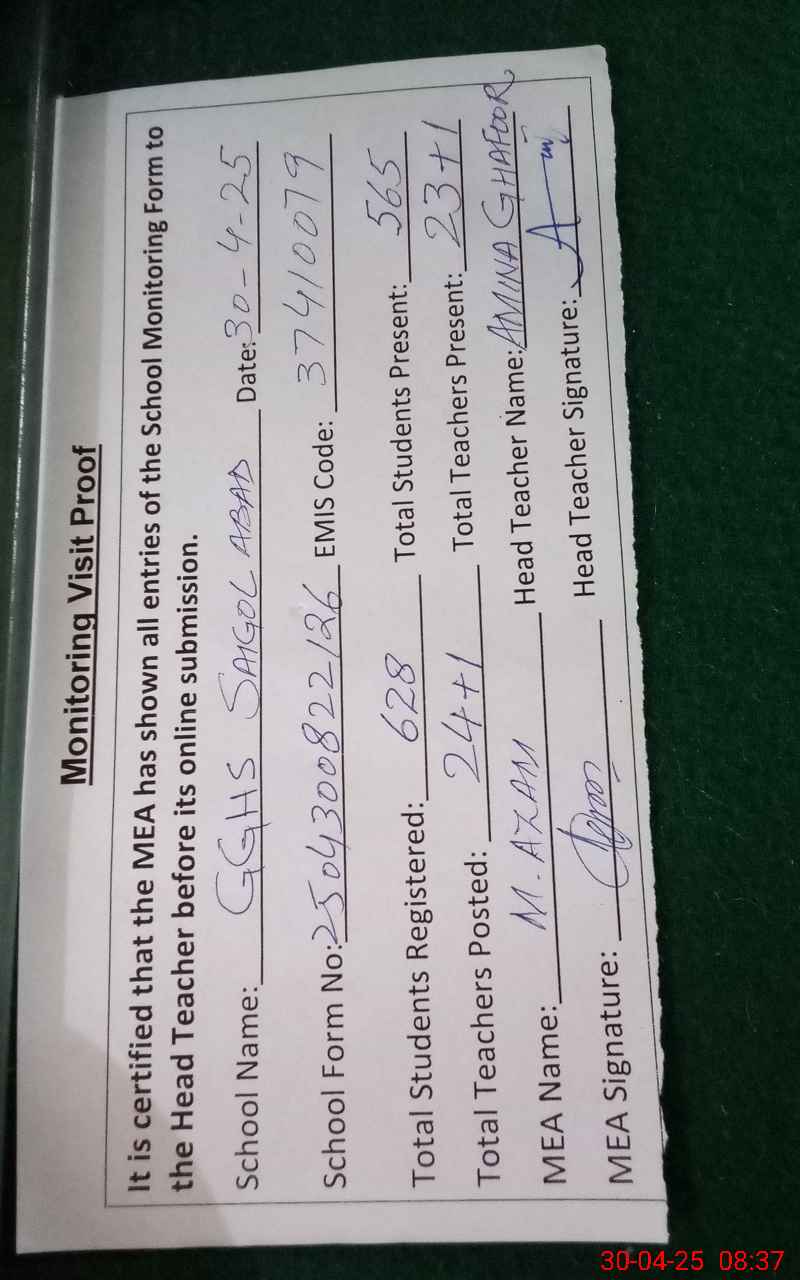 Monitoring Visit Proof
It is certified that the MEA has shown all entries of the School Monitoring Form to
the Head Teacher before its online submission.
School Name: GGHS SAIGOLABAD Date: 30-4-25
School Form No: 2504300822126 EMIS Code: 37410079
Total Students Registered: 628 Total Students Present: 565
Total Teachers Posted: 24+1 Total Teachers Present: 23+1
MEA Name: M. AZAM Head Teacher Name: AMINA GHAFOOR
MEA Signature: Head Teacher Signature:
30-04-25 08:37